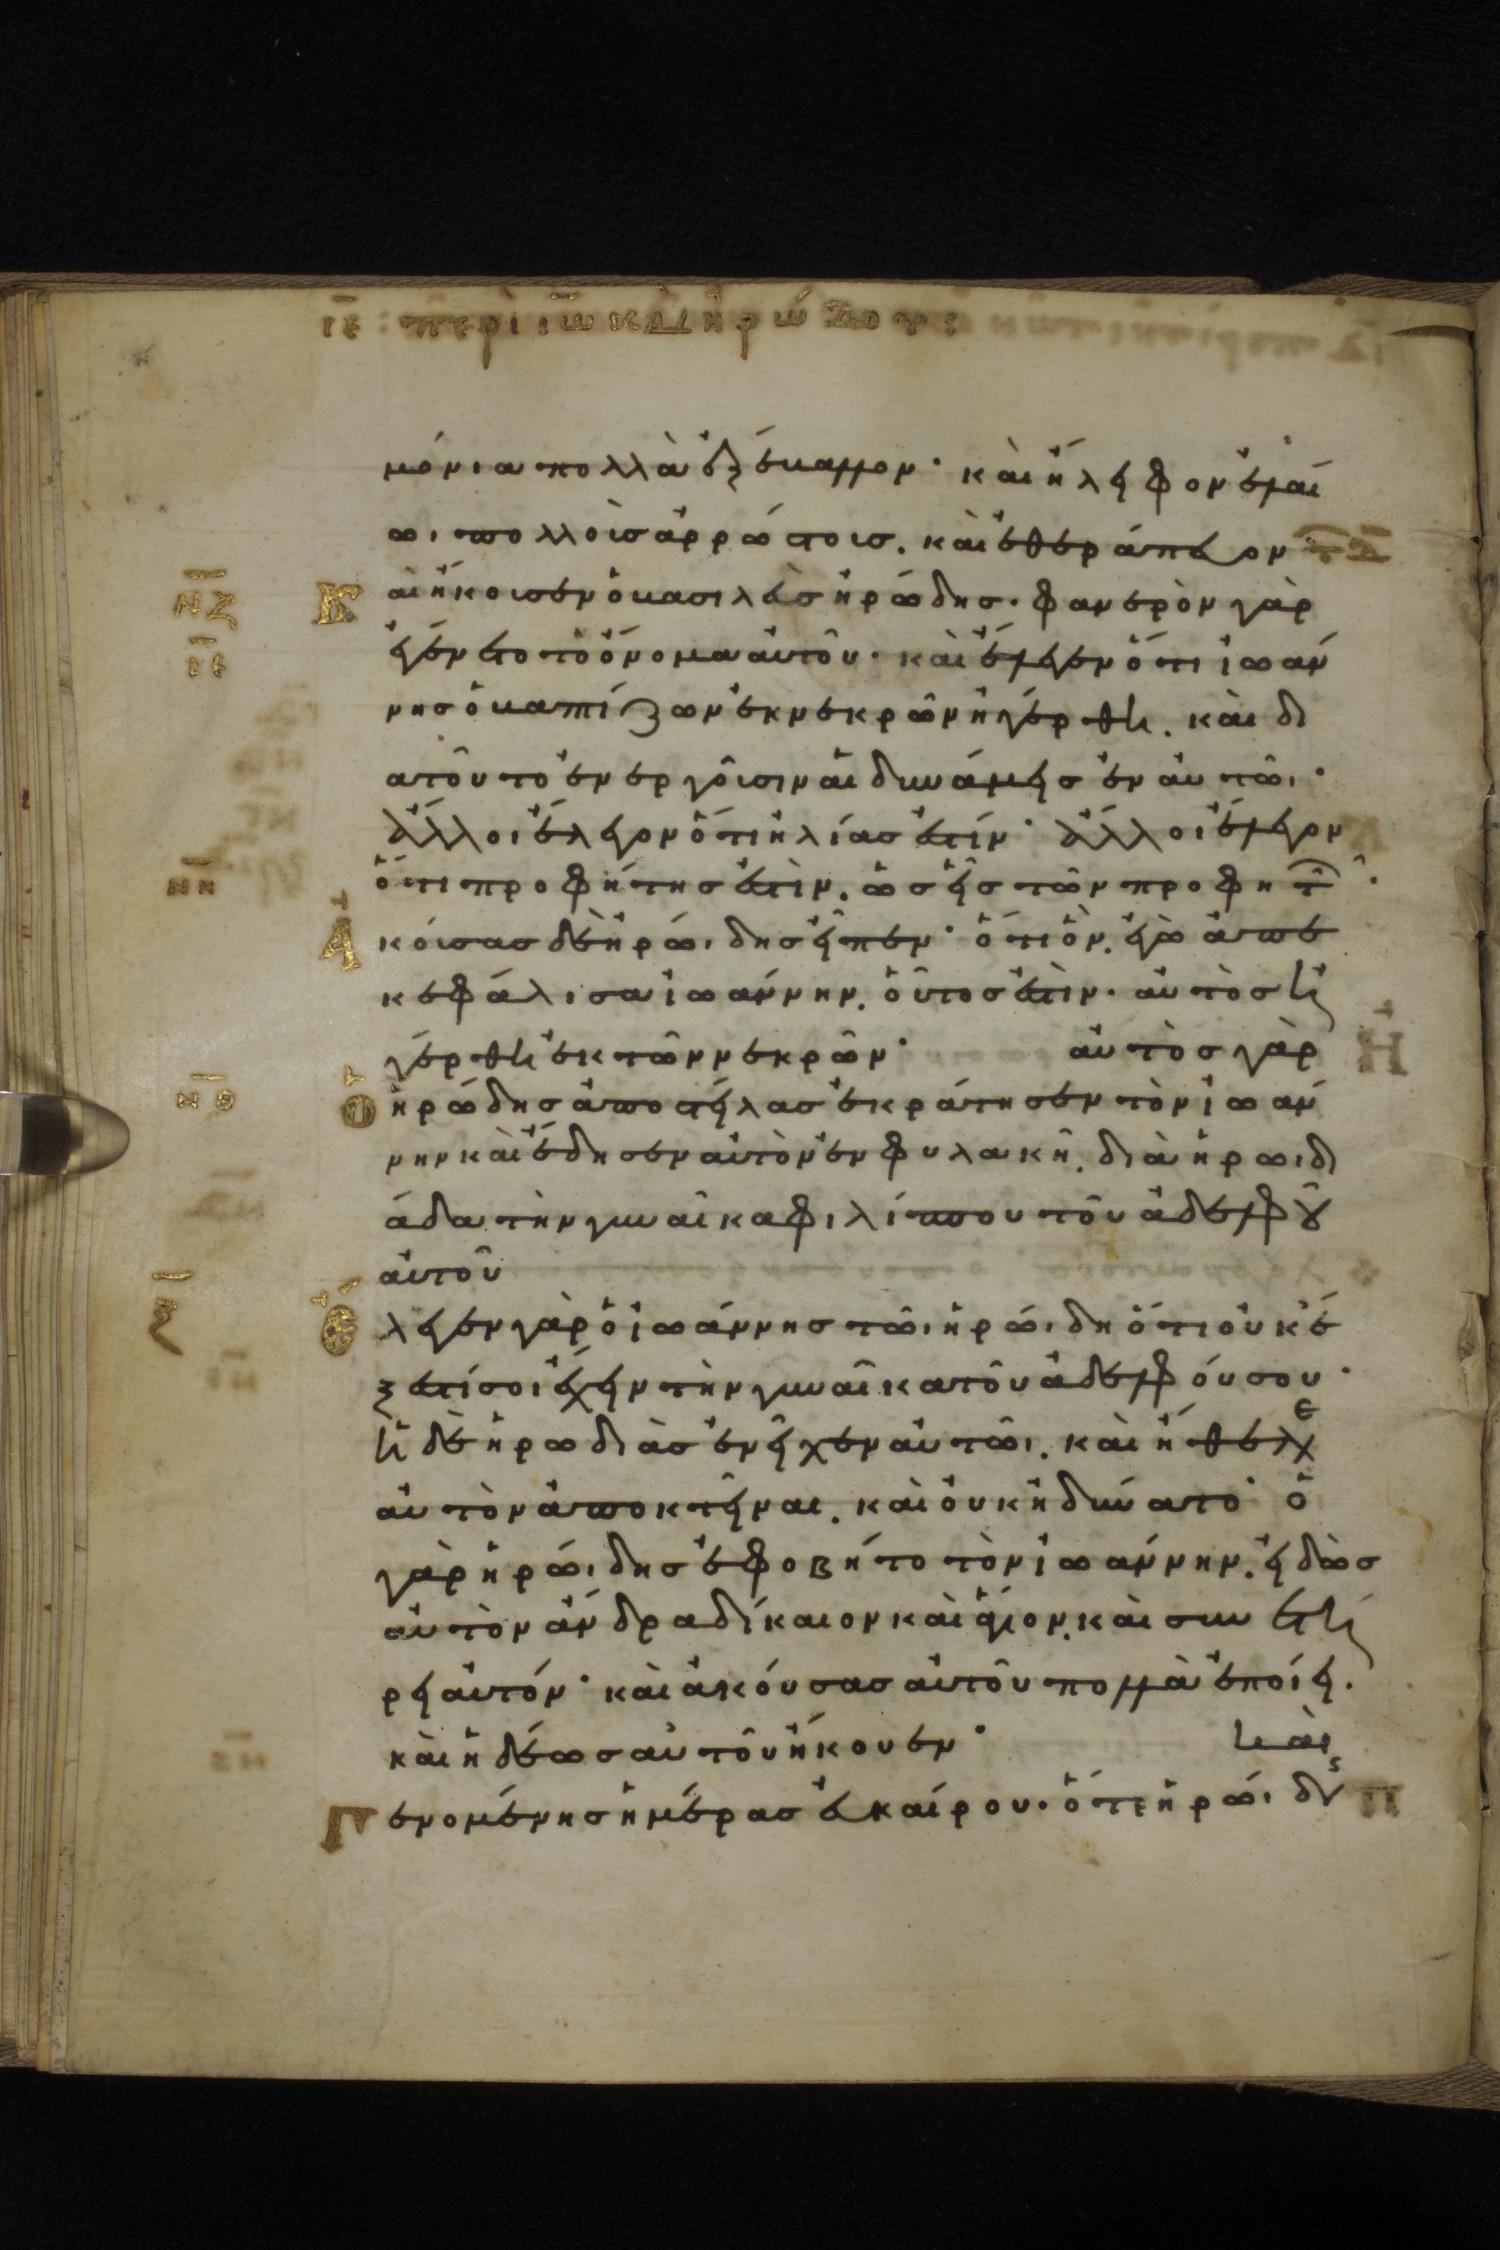 ιε: περὶ ἰω καὶ ἡρώδου:
μόνια πολλὰ ἐξέβαλλον· καὶ ἤλειφον ἐλαί
ωι πολλοὺς ἀρρώστους. καὶ ἐθεράπευον
Καὶ ἤκουσεν ὁ βασιλεὺς ἡρώδης. φανερὸν γὰρ
ἐγένετο τὸ ὄνομα αὐτοῦ. καὶ ἔλεγεν ὅτι ἰωάν
νης ὁ βαπτίζων ἐκ νεκρῶν ἠγέρθη. καὶ δι
α τοῦτο ἐνεργοῦσιν αἱ δυνάμεις ἐν αὐτῶι·
ἄλλοι ἔλεγον ὅτι ἠλίας ἐστίν· ἄλλοι ἔλεγον
ὅτι προφήτης ἐστὶν. ὡς εἷς τῶν προφητῶ·
Ἀκούσας δὲ ἡρώιδης εἶπεν· ὅτι ὃν ἐγὼ ἀπε
κεφάλισα ἰωάννην. οὗτος ἐστὶν. αὐτὸς ἠ
γέρθη ἐκ τῶν νεκρῶν· αὐτὸς γὰρ
Ὁ ἡρώδης ἀποστείλας ἐκράτησεν τὸν ἰωάν
νην καὶ ἔδησεν αὐτὸν ἐν φυλακῆ. διὰ ἡρωιδι
άδα τὴν γυναῖκα φιλίππου τοῦ ἀδελφοῦ
αὐτοῦ
Ἔλεγεν γὰρ ὁ ἰωάννης τῶι ἡρώιδη ὅτι οὐκ ἔ
ξεστί σοι ἔχειν τὴν γυναῖκα τοῦ ἀδελφού σου·
ἡ δὲ ἡρωδιὰς ἐνεῖχεν αὐτῶι. καὶ ἤθελε
αὐτὸν ἀποκτεῖναι. καὶ οὐκ ἠδύνατο· ὁ
γὰρ ἡρώιδης ἐφοβήτο τὸν ἰωάννην. εἰδὼς
αὐτὸν ἄνδρα δίκαιον καὶ ἅγιον. καὶ συνετή
ρει αὐτόν· καὶ ἀκούσας αὐτοῦ πολλὰ ἐποίει.
καὶ ἡδέως αὐτοῦ ἤκουεν· καὶ
Γενομένης ἡμέρας εὐκαίρου. ὅτε ἡρώιδης
νζ
ιε
νη
νθ
ξ